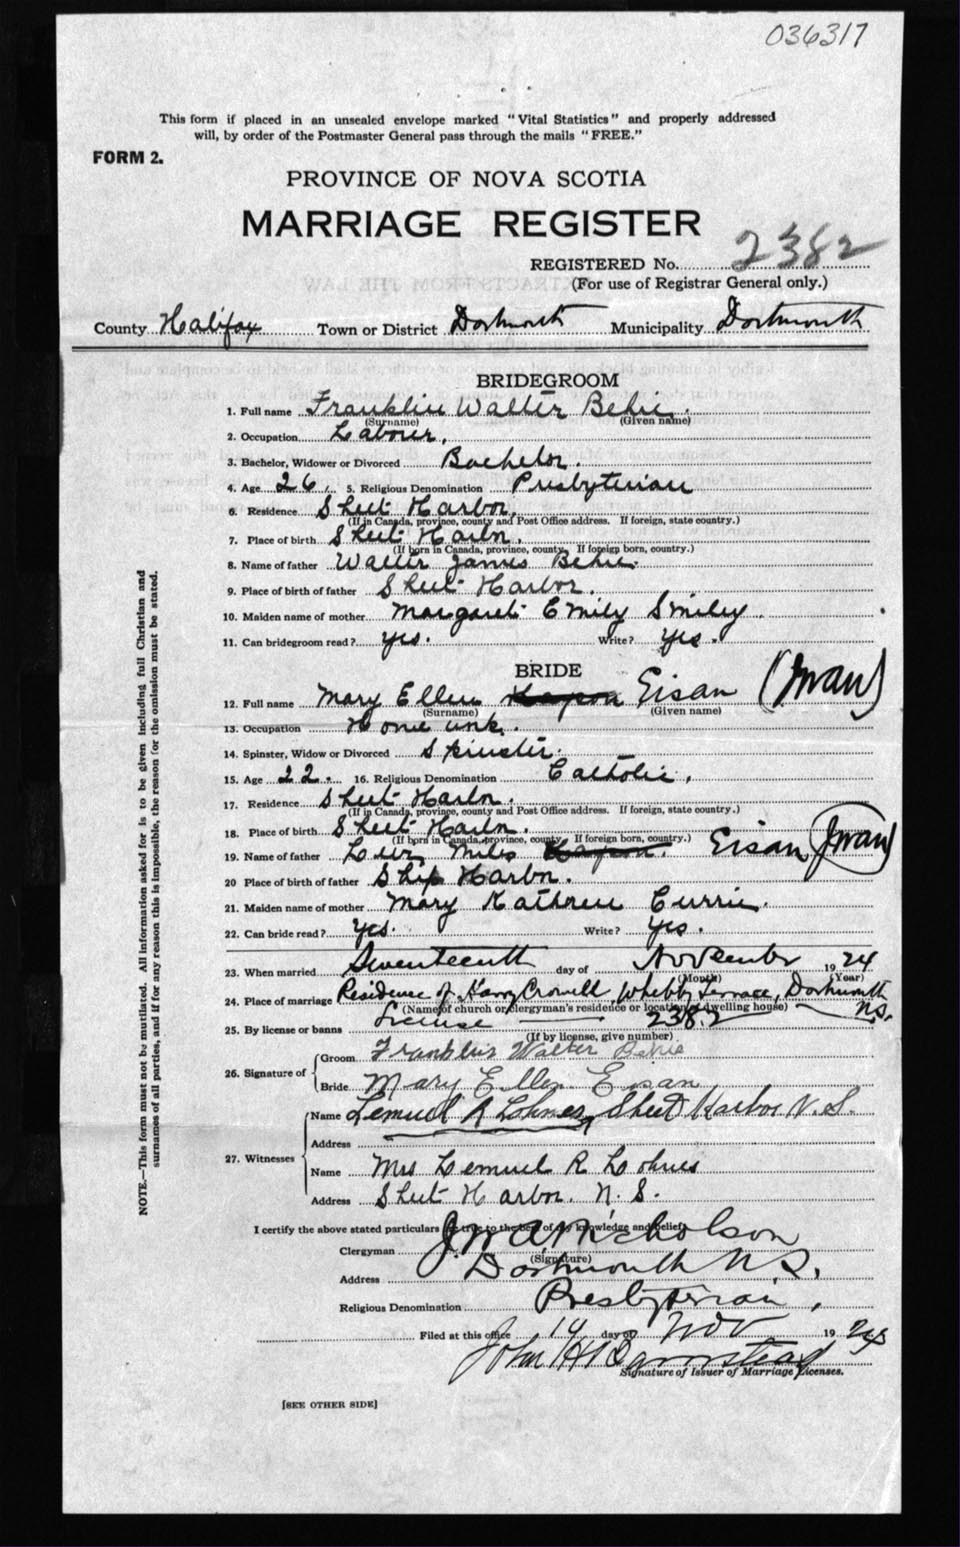 036317
This form if placed in an unsealed envelope marked "Vital Statistics" and properly addressed
will, by order of the Postmaster General pass through the mails "FREE."
FORM 2.
PROVINCE OF NOVA SCOTIA
MARRIAGE REGISTER
REGISTERED No. 2382
(For use of Registrar General only.)
County Halifax Town or District Dartmouth Municipality Dartmouth
BRIDEGROOM
1. Full name Franklin Walter Behie.
(Surname) (Given name)
2. Occupation Laborer,
3. Bachelor, Widower or Divorced Bachelor.
4. Age 26. 5. Religious Denomination Presbyterian
6. Residence Sheet Harbor.
(If in Canada, province, county and Post Office address. If foreign, state country.)
7. Place of birth Sheet Harbor.
(If born in Canada, province, county. If foreign born, country.)
8. Name of father Walter James Behie.
9. Place of birth of father Sheet Harbor.
10. Maiden name of mother Margaret Emily Smiley
11. Can bridegroom read? yes. Write? yes.
BRIDE
12. Full name Mary Ellen Eisan
(Surname) (Given name)
13. Occupation Home
14. Spinster, Widow or Divorced Spinster.
15. Age 22. 16. Religious Denomination Catholic.
17. Residence Sheet Harbor.
(If in Canada, province, county and Post Office address. If foreign, state country.)
18. Place of birth Sheet Harbor.
(If born in Canada, province, county. If foreign born, country.)
19. Name of father Miles Eisan
20 Place of birth of father Ship Harbor.
21. Maiden name of mother Mary Currie.
22. Can bride read? Yes. Write? yes.
23. When married Seventeenth day of November 1924
(Month) (Year)
24. Place of marriage Residence of Harry Crowell, Terrace, Dartmouth N.S.
(Name of church or clergyman's residence or location of dwelling house)
25. By license or banns License 2382
(If by license, give number)
26. Signature of
Groom Franklin Walter Behie
Bride Mary Ellen Eisan
27. Witnesses
Name Lemuel R Lohnes, Sheet Harbor N.S.
Address
Name Mrs Lemuel R Lohnes
Address Sheet Harbor. N.S.
I certify the above stated particulars are true to the best of my knowledge and belief.
Clergyman J. W. A. Nicholson
(Signature)
Address Dartmouth N S.
Religious Denomination Presbyterian.
Filed at this office 14 day of Nov 1924
John H
Signature of Issuer of Marriage Licenses.
[SEE OTHER SIDE]
NOTE.—This form must not be mutilated. All information asked for is to be given including full Christian and
surnames of all parties, and if for any reason this is impossible, the reason for the omission must be stated.